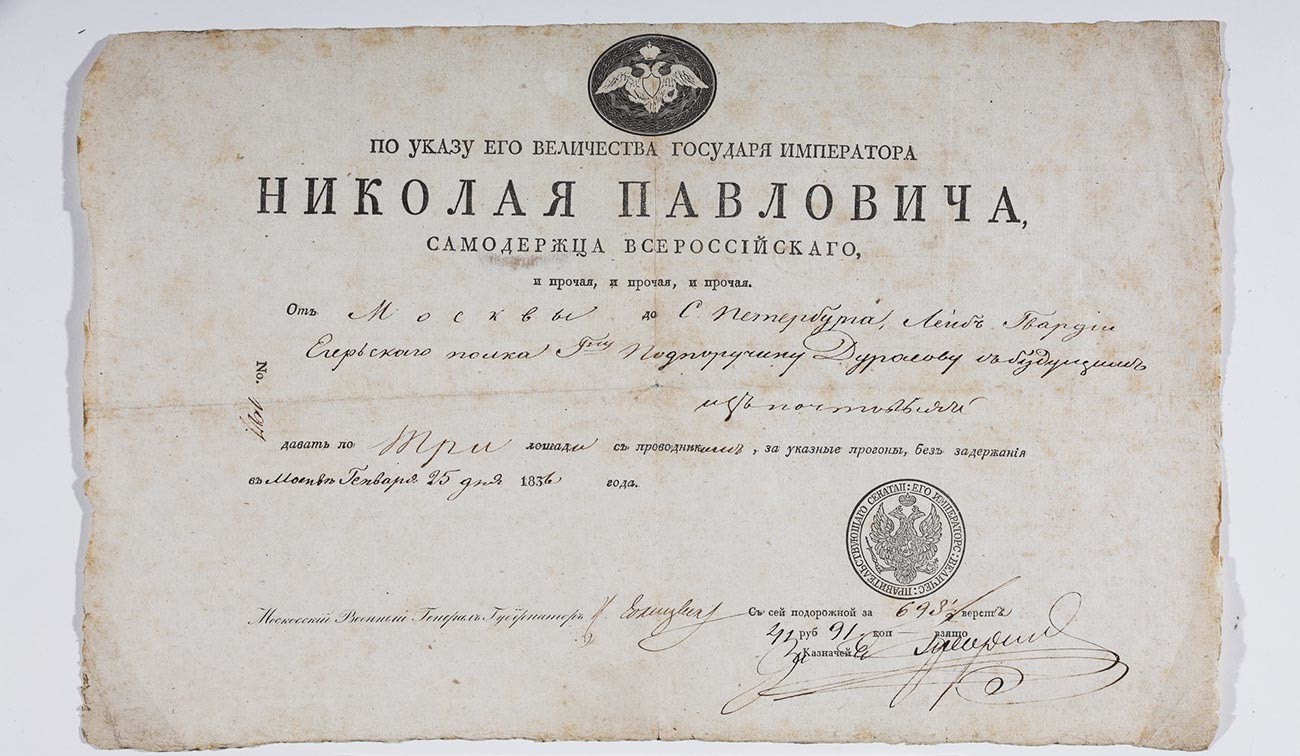 ПО УКАЗУ ЕГО ВЕЛИЧЕСТВА ГОСУДАРЯ ИМПЕРАТОРА
НИКОЛАЯ ПАВЛОВИЧА,
САМОДЕРЖЦА ВСЕРОССІЙСКАГО,
и прочая, и прочая, и прочая.
Отъ Москвы до С. Петербурга, Лейбъ Гвардіи
Егерьскаго полка Гну Подпоручику Дурасову съ будущимъ
No.
давать по три лошади съ проводникомъ, за указные прогоны, безъ задержанія
въ Москвѣ Генваря 25 дня 1836 года.
ПРАВИТЕЛЬСТВУЮЩАГО СЕНАТА П: ЕГО ИМПЕРАТОРС: ВЕЛИЧЕС:
Московскій Военный Генералъ Губернаторъ
Съ сей подорожной за 698½ верстъ
41 руб 91 коп взято
Казначей